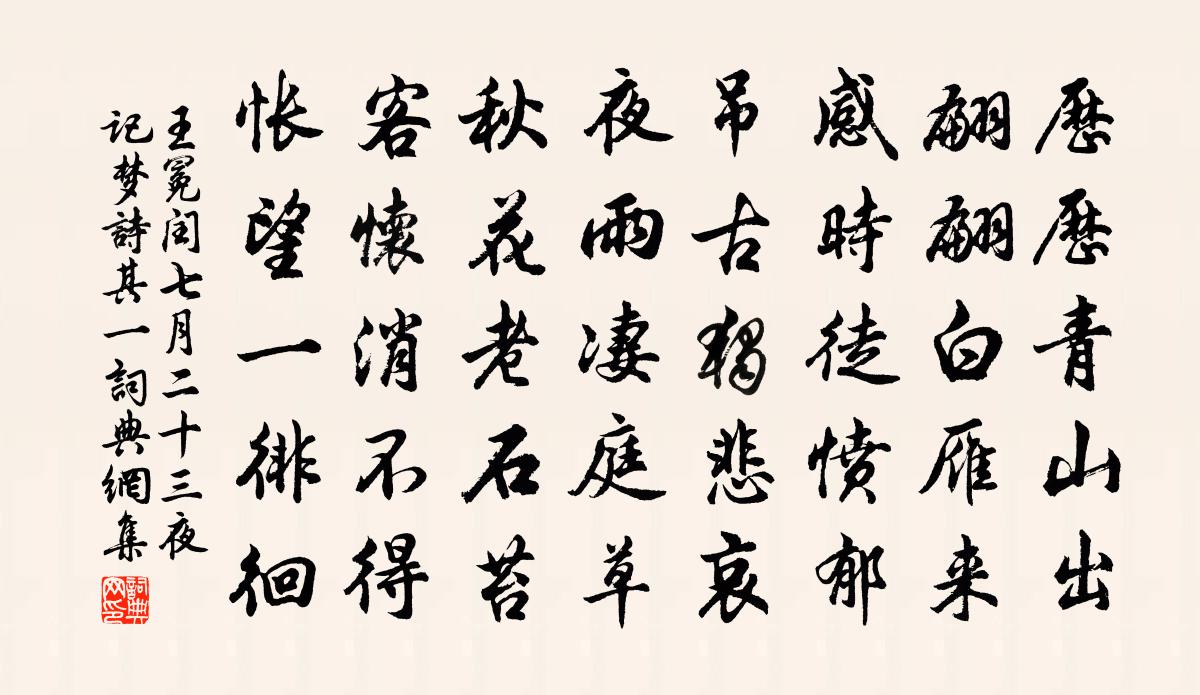 歷歷青山出
翩翩白雁来
感時徒憤郁
吊古獨悲哀
夜雨凄庭草
秋花老石苔
客懷消不得
悵望一徘徊
王冕闰七月二十三夜
记梦詩其一詞典網集
詞典
网印